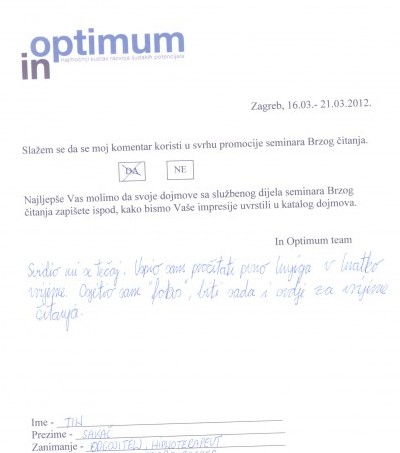 optimum
in
najmoćniji sustav razvoja ljudskih potencijala
Zagreb, 16.03.- 21.03.2012.
Slažem se da se moj komentar koristi u svrhu promocije seminara Brzog čitanja.
DA NE
Najljepše Vas molimo da svoje dojmove sa službenog dijela seminara Brzog
čitanja zapišete ispod, kako bismo Vaše impresije uvrstili u katalog dojmova.
In Optimum team
Svidio mi se tečaj. Uspio sam pročitati puno knjiga u kratko
vrijeme. Osjetio sam "fokus", biti sada i ovdje za vrijeme
čitanja.
Ime - TIN
Prezime - SAKAČ
Zanimanje - ODGOJITELJ, BIBLIOTERAPEUT